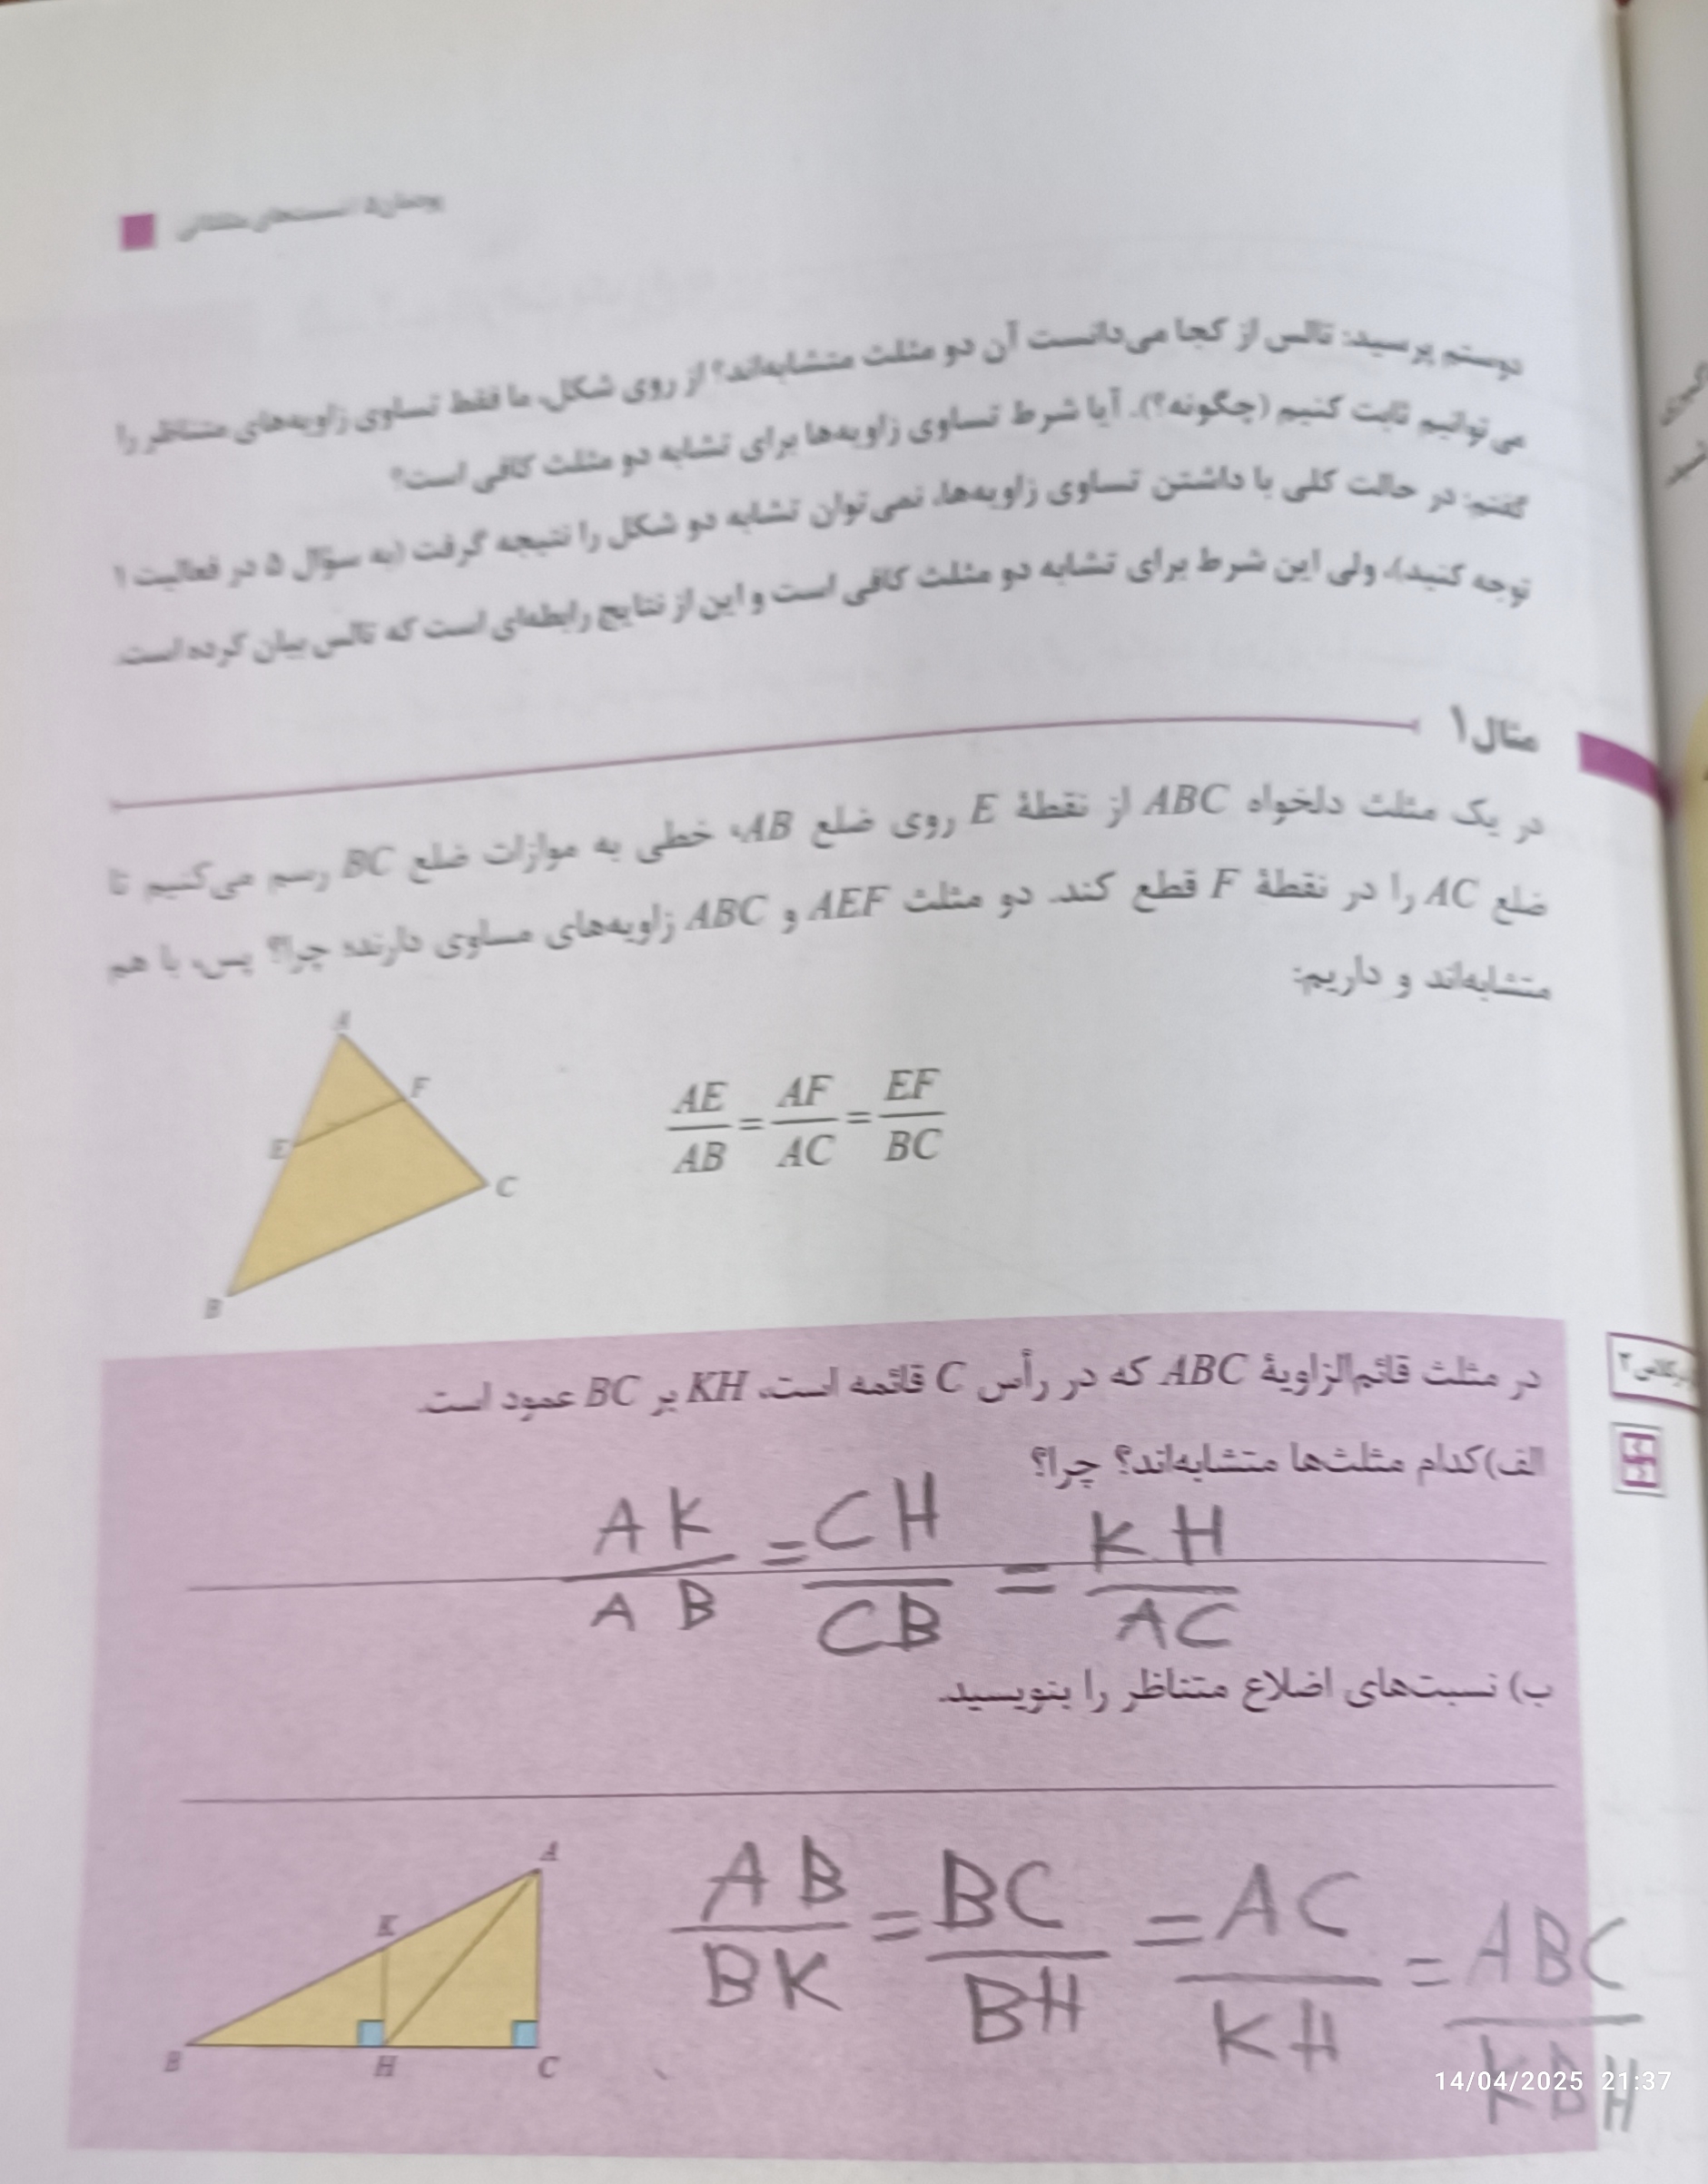 پودمان ۵ نسبت‌های مثلثاتی
دوستم پرسید: تالس از کجا می‌دانست آن دو مثلث متشابه‌اند؟ از روی شکل، ما فقط تساوی زاویه‌های متناظر را
می‌توانیم ثابت کنیم (چگونه؟). آیا شرط تساوی زاویه‌ها برای تشابه دو مثلث کافی است؟
گفتم: در حالت کلی با داشتن تساوی زاویه‌ها، نمی‌توان تشابه دو شکل را نتیجه گرفت (به سؤال ۵ در فعالیت ۱
توجه کنید)، ولی این شرط برای تشابه دو مثلث کافی است و این از نتایج رابطه‌ای است که تالس بیان کرده است.
مثال ۱
در یک مثلث دلخواه ABC از نقطهٔ E روی ضلع AB، خطی به موازات ضلع BC رسم می‌کنیم تا
ضلع AC را در نقطهٔ F قطع کند. دو مثلث AEF و ABC زاویه‌های مساوی دارند؛ چرا؟ پس، با هم
متشابه‌اند و داریم:
A
F
E
C
B
AE/AB = AF/AC = EF/BC
در مثلث قائم‌الزاویهٔ ABC که در رأس C قائمه است، KH بر BC عمود است.
الف) کدام مثلث‌ها متشابه‌اند؟ چرا؟
AK/AB = CH/CB = KH/AC
ب) نسبت‌های اضلاع متناظر را بنویسید.
AB/BK = BC/BH = AC/KH = ABC/KBH
A
K
B
H
C
14/04/2025 21:37